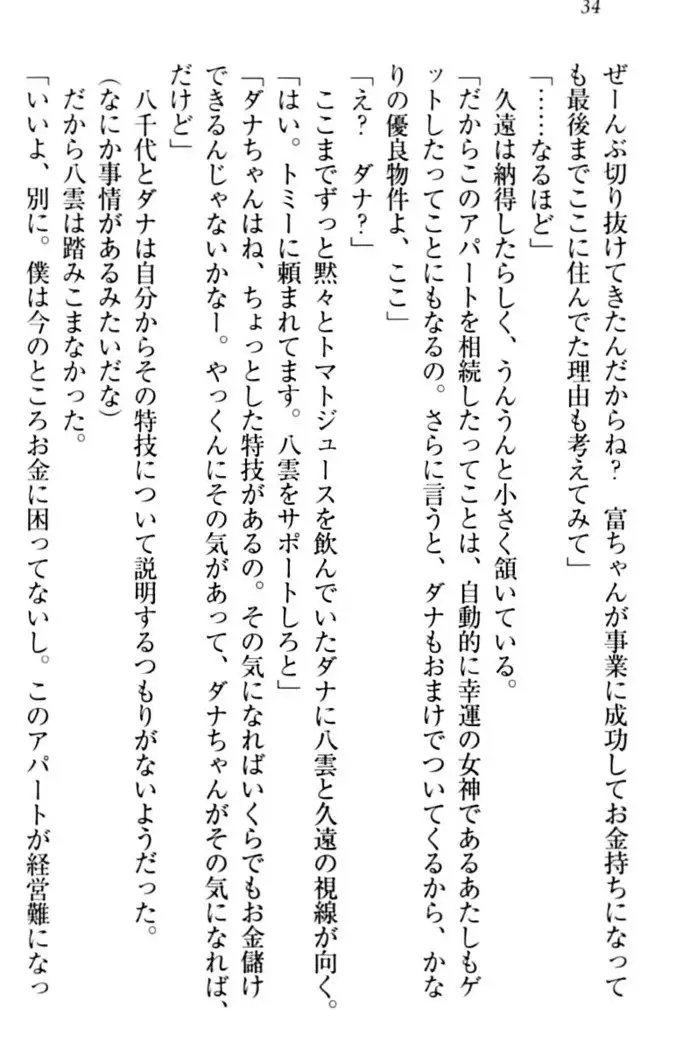 34
ぜーんぶ切り抜けてきたんだからね？　富ちゃんが事業に成功してお金持ちになって
も最後までここに住んでた理由も考えてみて」
「……なるほど」
　久遠は納得したらしく、うんうんと小さく頷いている。
「だからこのアパートを相続したってことは、自動的に幸運の女神であるあたしもゲ
ットしたってことにもなるの。さらに言うと、ダナもおまけでついてくるから、かな
りの優良物件よ、ここ」
「え？　ダナ？」
　ここまでずっと黙々とトマトジュースを飲んでいたダナに八雲と久遠の視線が向く。
「はい。トミーに頼まれてます。八雲をサポートしろと」
「ダナちゃんはね、ちょっとした特技があるの。その気になればいくらでもお金儲け
できるんじゃないかなー。やっくんにその気があって、ダナちゃんがその気になれば、
だけど」
　八千代とダナは自分からその特技について説明するつもりがないようだった。
（なにか事情があるみたいだな）
　だから八雲は踏みこまなかった。
「いいよ、別に。僕は今のところお金に困ってないし。このアパートが経営難になっ